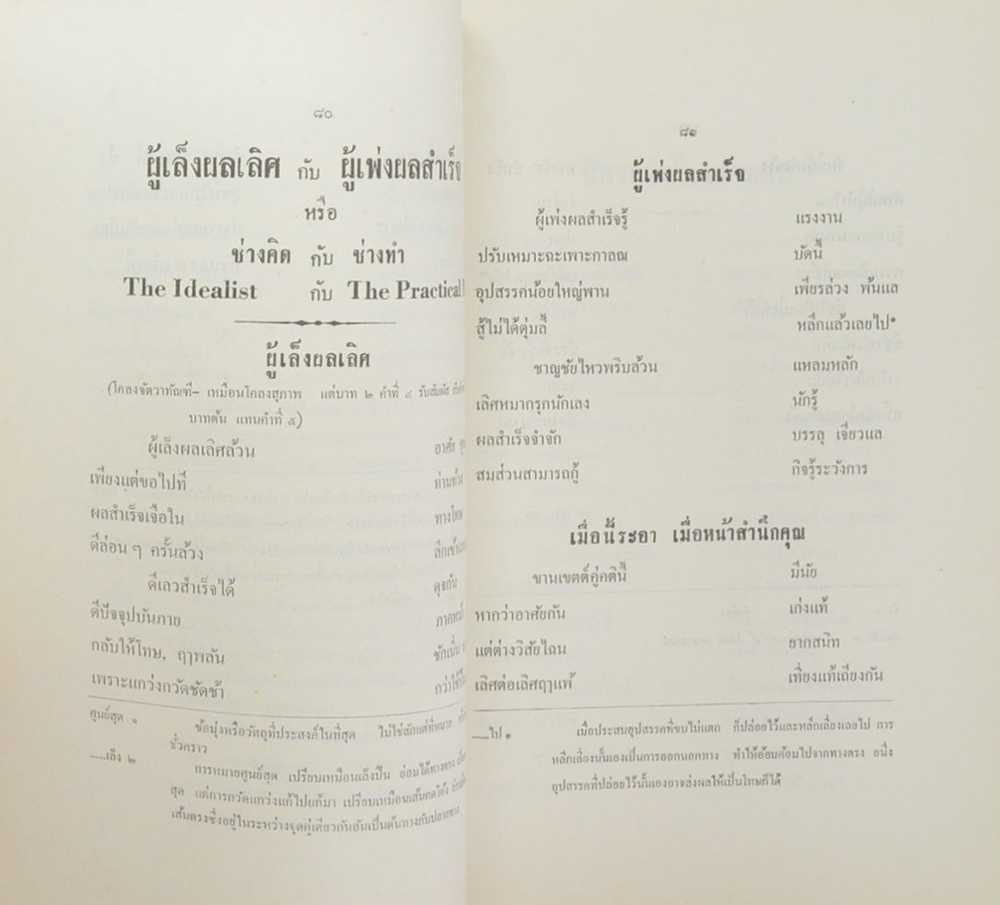 ๘๐
ผู้เล็งผลเลิศ กับ ผู้เพ่งผลสำเร็จ
หรือ
ช่างคิด กับ ช่างทำ
The Idealist กับ The Practical
ผู้เล็งผลเลิศ
(โคลงจัตวาทัณฑี– เหมือนโคลงสุภาพ แต่บาท ๒ คำที่ ๔ รับสัมผัส
บาทต้น แทนคำที่ ๕)
ผู้เล็งผลเลิศล้วน อาศัย
เพียงแต่ขอไปที ท่านท้วง
ผลสำเร็จเจือใน ทางโทษ
ดีล่อนๆ ครั้นล้วง
ดีเลวสำเร็จได้ ดุจกัน
ดีปัจจุปบันภาย
กลับให้โทษ, ฤๅพลัน
เพราะแกว่งกวัดชัดช้า
ศูนย์สุด ๑ ข้อมุ่งหรือวัตถุที่ประสงค์ในที่สุด ไม่ใช่สักแต่ที่หมาย
ชั่วคราว
.....เล็ง ๒ การหมายศูนย์สุด เปรียบเหมือนเล็งปืน ย่อมได้ทางตรง
สุด แต่การกวัดแกว่งแก้ไปแก้มา เปรียบเหมือนเส้นคดโค้ง
เส้นตรงซึ่งอยู่ในระหว่างจุดคู่เดียวกันอันเป็นต้นทางกับปลายทาง
๘๑
ผู้เพ่งผลสำเร็จ
ผู้เพ่งผลสำเร็จรู้ แรงงาน
ปรับเหมาะฉะเพาะกาลณ บัดนี้
อุปสรรคน้อยใหญ่พาน เพียรล่วง พ้นแล
สู้ไม่ได้ตุ่มลี้ หลีกแล้วเลยไป*
ชาญชัยไหวพริบล้วน แหลมหลัก
เลิศหมากรุกนักเลง นักรู้
ผลสำเร็จจำจัก บรรลุ เจียวแล
สมส่วนสามารถกู้ กิจรู้ระวังการ
เมื่อนี้ระอา เมื่อหน้าสำนึกคุณ
ขานเขตต์คู่คตินี้ มีนัย
หากว่าอาศัยกัน เก่งแท้
แต่ต่างวิสัยไฉน ยากสนิท
เลิศต่อเลิศฤๅแพ้ เที่ยงแท้เถียงกัน
......ไป ๑ เมื่อประสบอุปสรรคที่ขบไม่แตก ก็ปล่อยไว้และหลีกเลี่ยงเลยไป การ
หลีกเลี่ยงนั้นเองเป็นการออกนอกทาง ทำให้อ้อมค้อมไปจากทางตรง อนึ่ง
อุปสรรคที่ปล่อยไว้นั้นเองอาจส่งผลให้เป็นโทษก็ได้